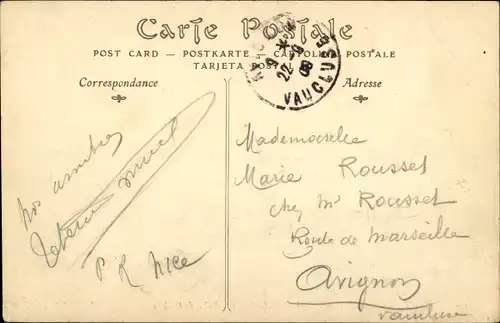 Carte Postale
POST CARD — POSTKARTE — CARTOLINA POSTALE
TARJETA POSTAL
Correspondance
Adresse
9 * 
22-9
08
VAUCLUSE
Nos
P R Nice
Mademoiselle
Marie Rousset
chez Mr Rousset
Route de Marseille
Avignon
Vaucluse